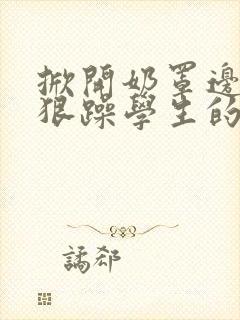 掀開奶罩邊
狠躁學生的
譎郄